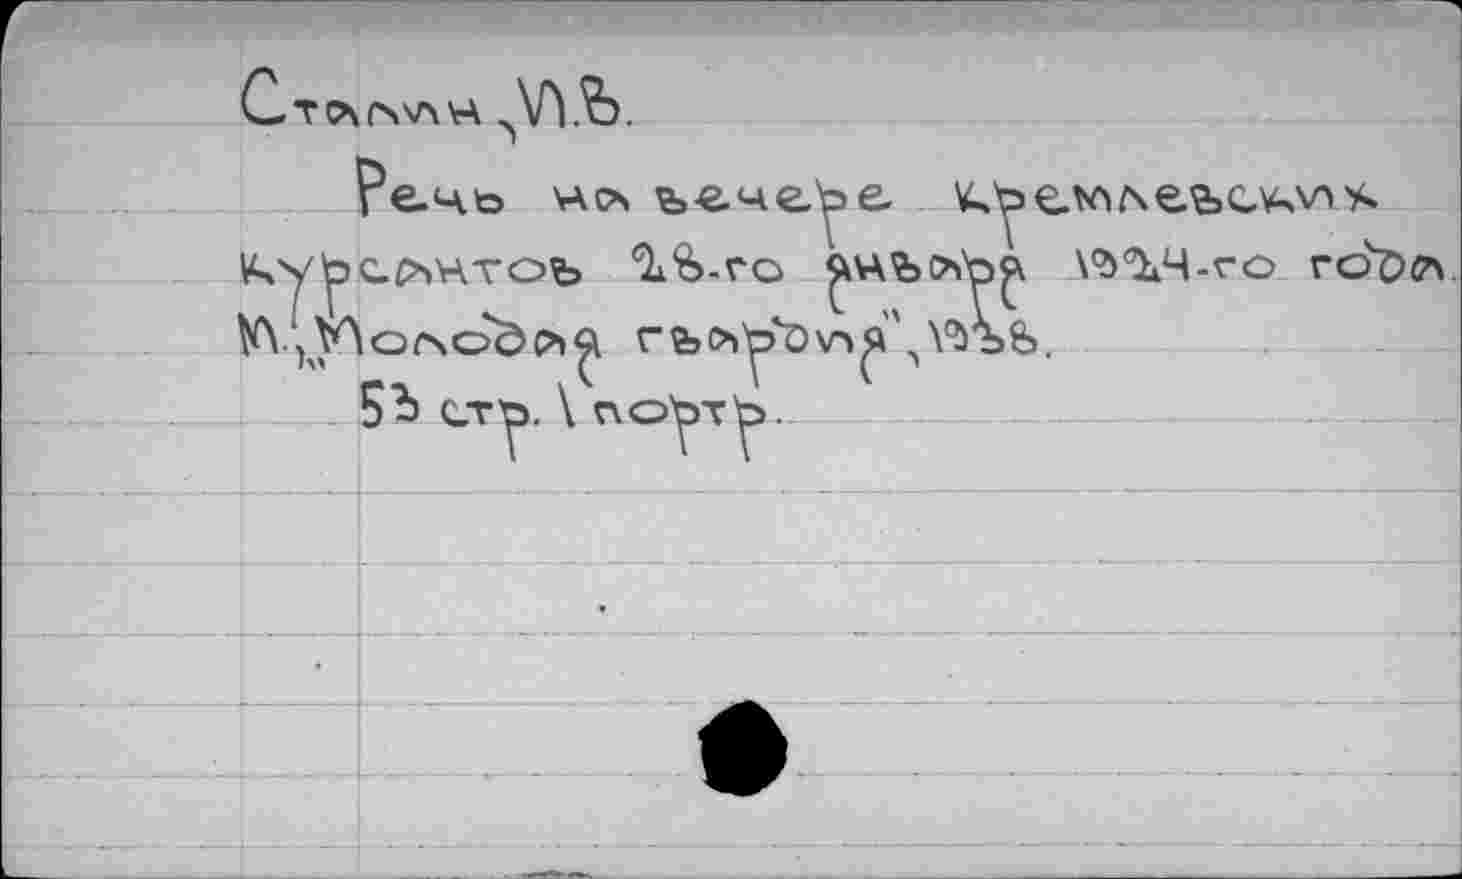 Сталин, И.В.
Речь на вечере кремлевских
курсантов 28-го января 1924-го года.
М., „Молодая гвардия", 1938.
53 стр. 1 портр.